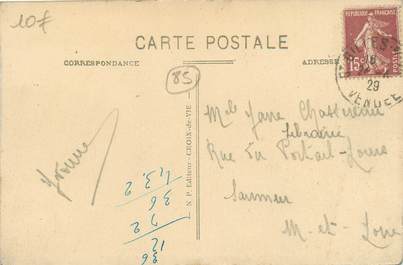 10f
CARTE POSTALE
CORRESPONDANCE
ADRESSE
REPUBLIQUE FRANÇAISE
15c
POSTES
29
VENDEE
85
N. P. Editeur - CROIX-de-VIE
Yvonne
43,2
36
72
12
36
Mlle Jane Chasseriau
Librairie
Rue du Portail-Louis
Saumur
M-et-Loire